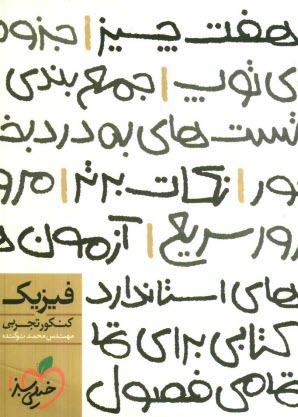 هفت چیز | جزوه
ی توپ | جمع بندی
تست های به درد بخ
ور | نکات برتر | مرو
رور سریع | آزمون ه
های استاندارد
کتابی برای تما
تمامی فصول
فیزیک
کنکور تجربی
مهندس محمد
خیلی سبز